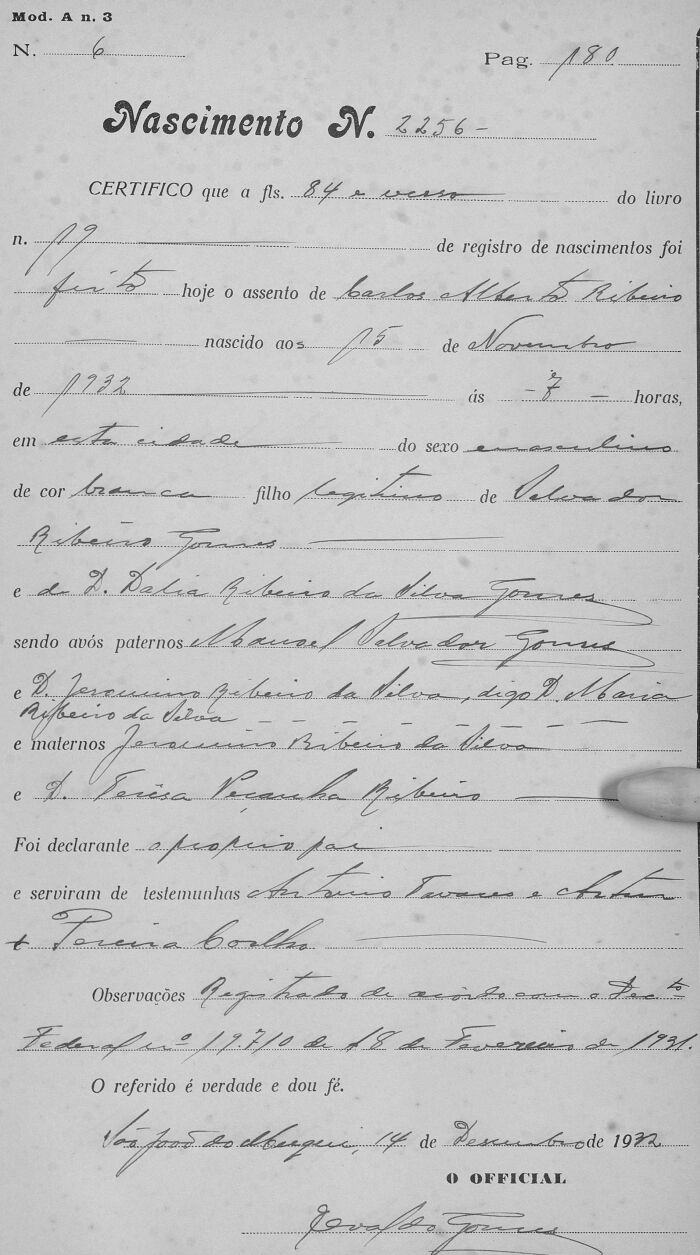 Mod. A n. 3
N. 6 Pag. 180
Nascimento N. 2256 -
CERTIFICO que a fls. 84 e verso do livro
n. 19 de registro de nascimentos foi
feito hoje o assento de Carlos Alberto Ribeiro
nascido aos 15 de Novembro
de 1932 ás - 7 - horas,
em esta cidade do sexo masculino
de cor branca filho legitimo de Salvador
Ribeiro Gomes
e de D. Dalia Ribeiro da Silva Gomes
sendo avós paternos Manoel Salvador Gomes
e D. Jeronimo Ribeiro da Silva, digo D. Maria
Ribeiro da Silva
e maternos Jeronimo Ribeiro da Silva
e D. Teresa Peçanha Ribeiro
Foi declarante o proprio pai
e serviram de testemunhas Antonio Tavares e Artur
Pereira Coelho
Observações Registrado de acordo com o Decto
Federal nº 19.710 de 18 de Fevereiro de 1931.
O referido é verdade e dou fé.
São João do Meriti, 14 de Dezembro de 1932
O OFFICIAL
Gomes